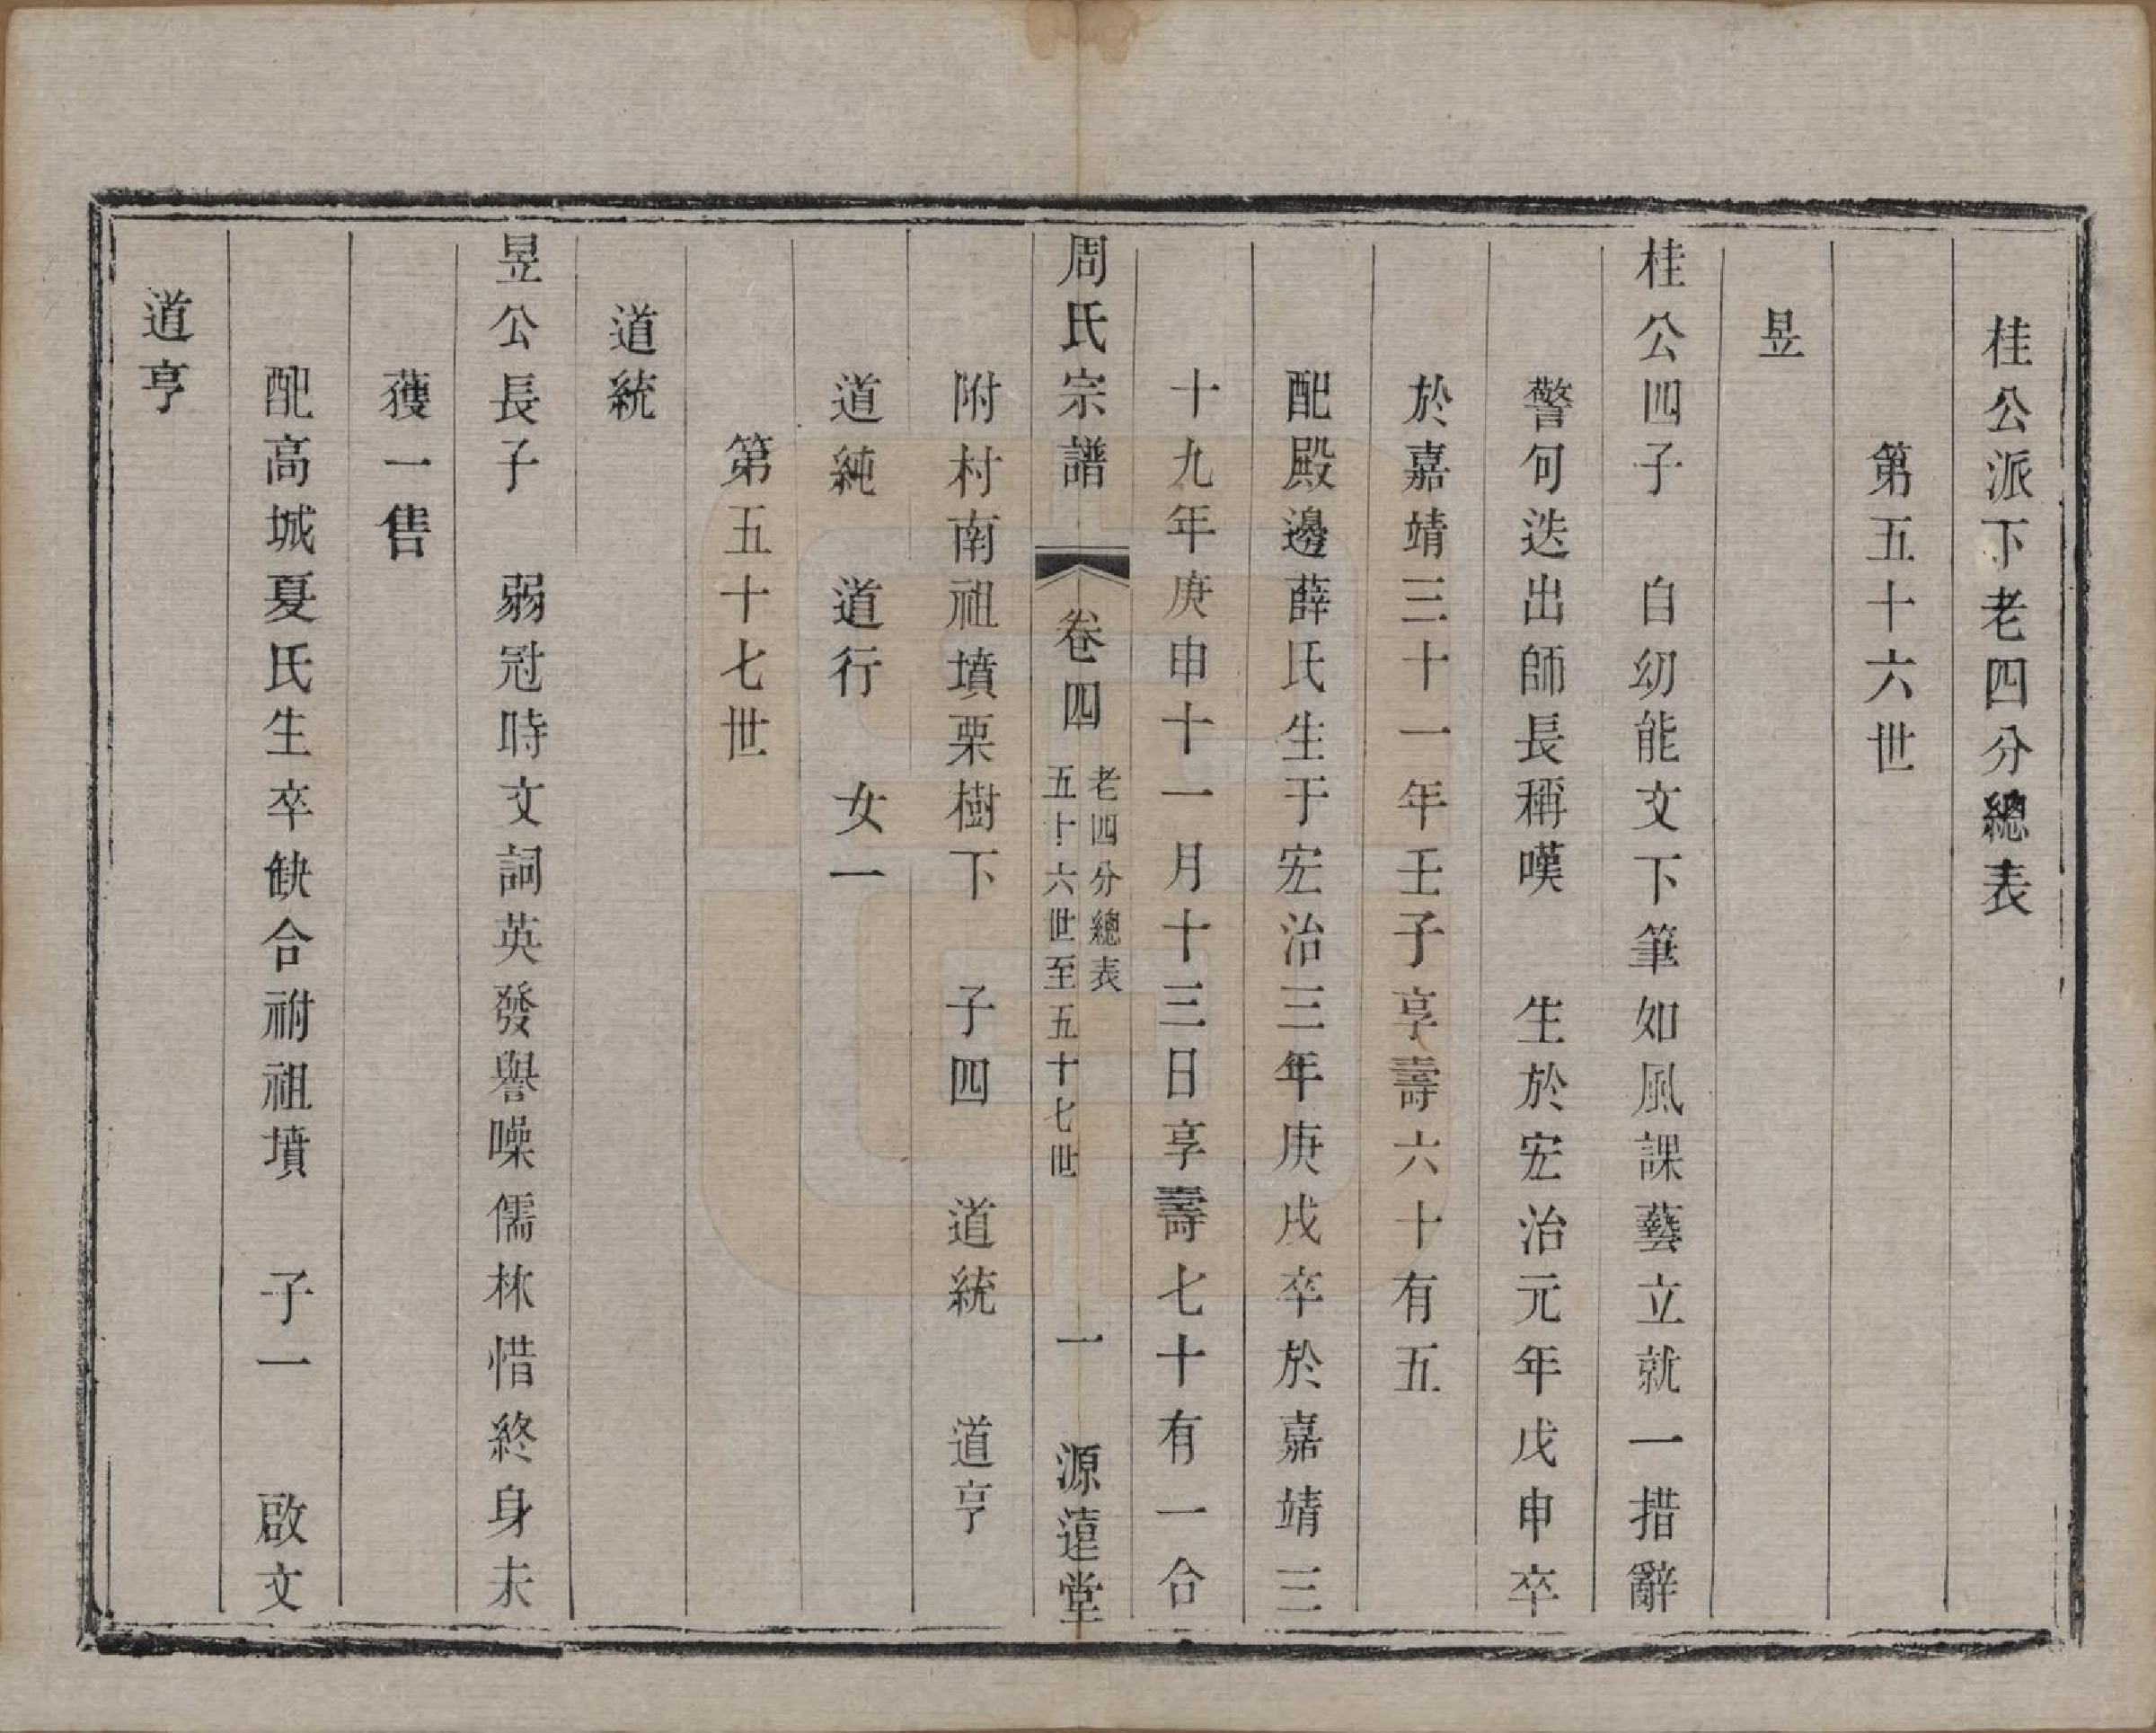 桂公派下老四分總表
第五十六世
昱
桂公四子　自幼能文下筆如風課藝立就一措辭
警句迭出師長稱嘆　生於宏治元年戊申卒
於嘉靖三十一年壬子享壽六十有五
配殿邊薛氏生于宏治三年庚戌卒於嘉靖三
十九年庚申十一月十三日享壽七十有一合
周氏宗譜　卷四　老四分總表
五十六世至五十七世　一　源遠堂
附村南祖墳栗樹下　子四　道統　道亨
道純　道行　女一
第五十七世
道統
昱公長子　弱冠時文詞英發譽噪儒林惜終身未
獲一售
配高城夏氏生卒缺合祔祖墳　子一　啟文
道亨